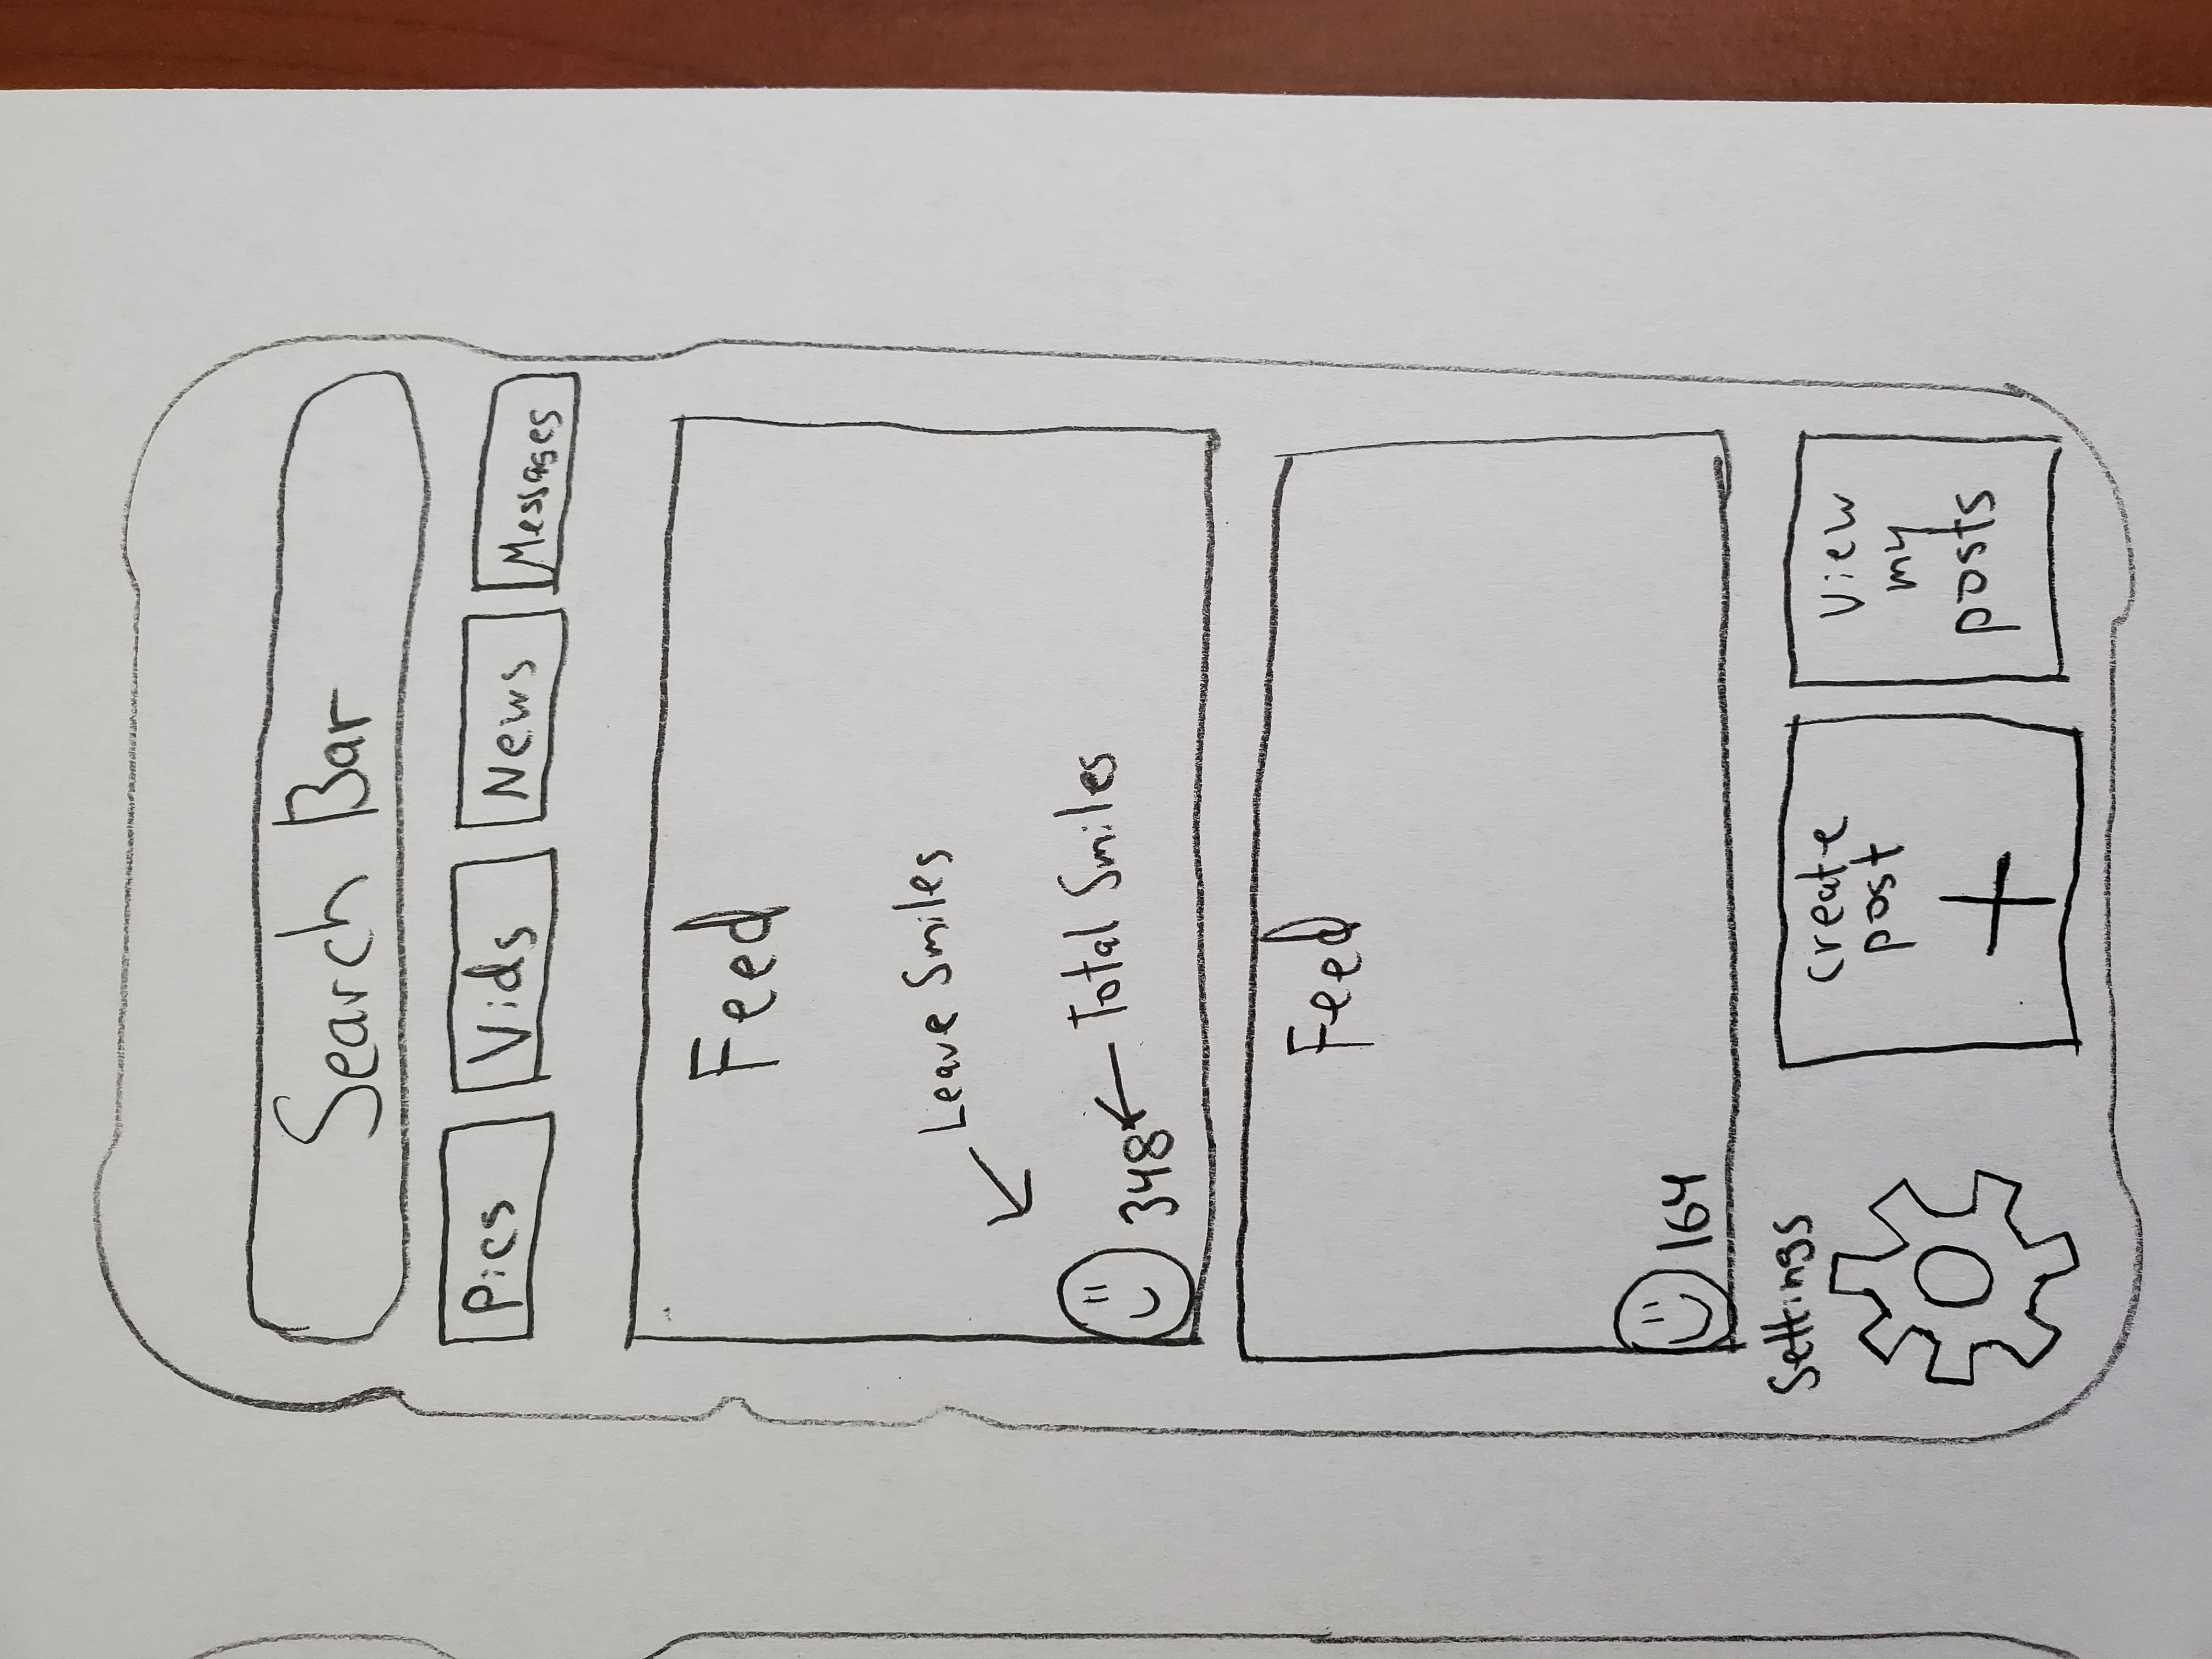 Search Bar
Pics
Vids
News
Messages
Feed
Leave Smiles
348
Total Smiles
Feed
164
Settings
create
post
+
View
my
posts